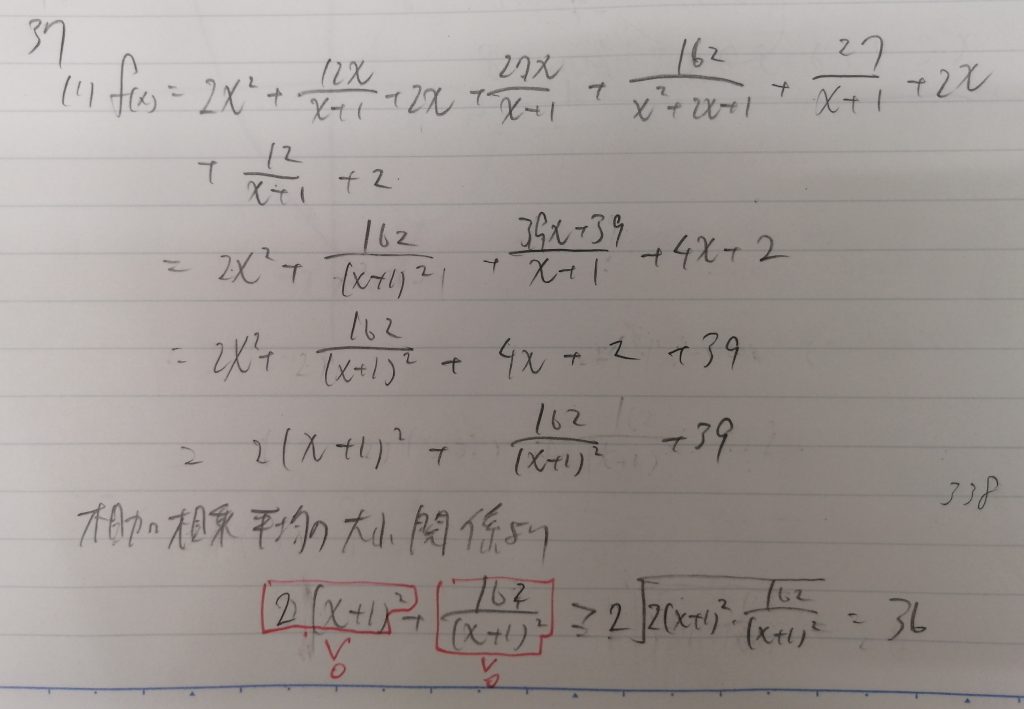 37
(1) f(x) = 2x² + 12x/(x+1) + 2x + 27x/(x+1) + 162/(x²+2x+1) + 27/(x+1) + 2x
+ 12/(x+1) + 2
= 2x² + 162/(x+1)² + (39x+39)/(x+1) + 4x + 2
= 2x² + 162/(x+1)² + 4x + 2 + 39
= 2(x+1)² + 162/(x+1)² + 39
338
相加相乗平均の大小関係より
2(x+1)² + 162/(x+1)² ≥ 2√(2(x+1)²・162/(x+1)²) = 36
∨ ∨
0 0